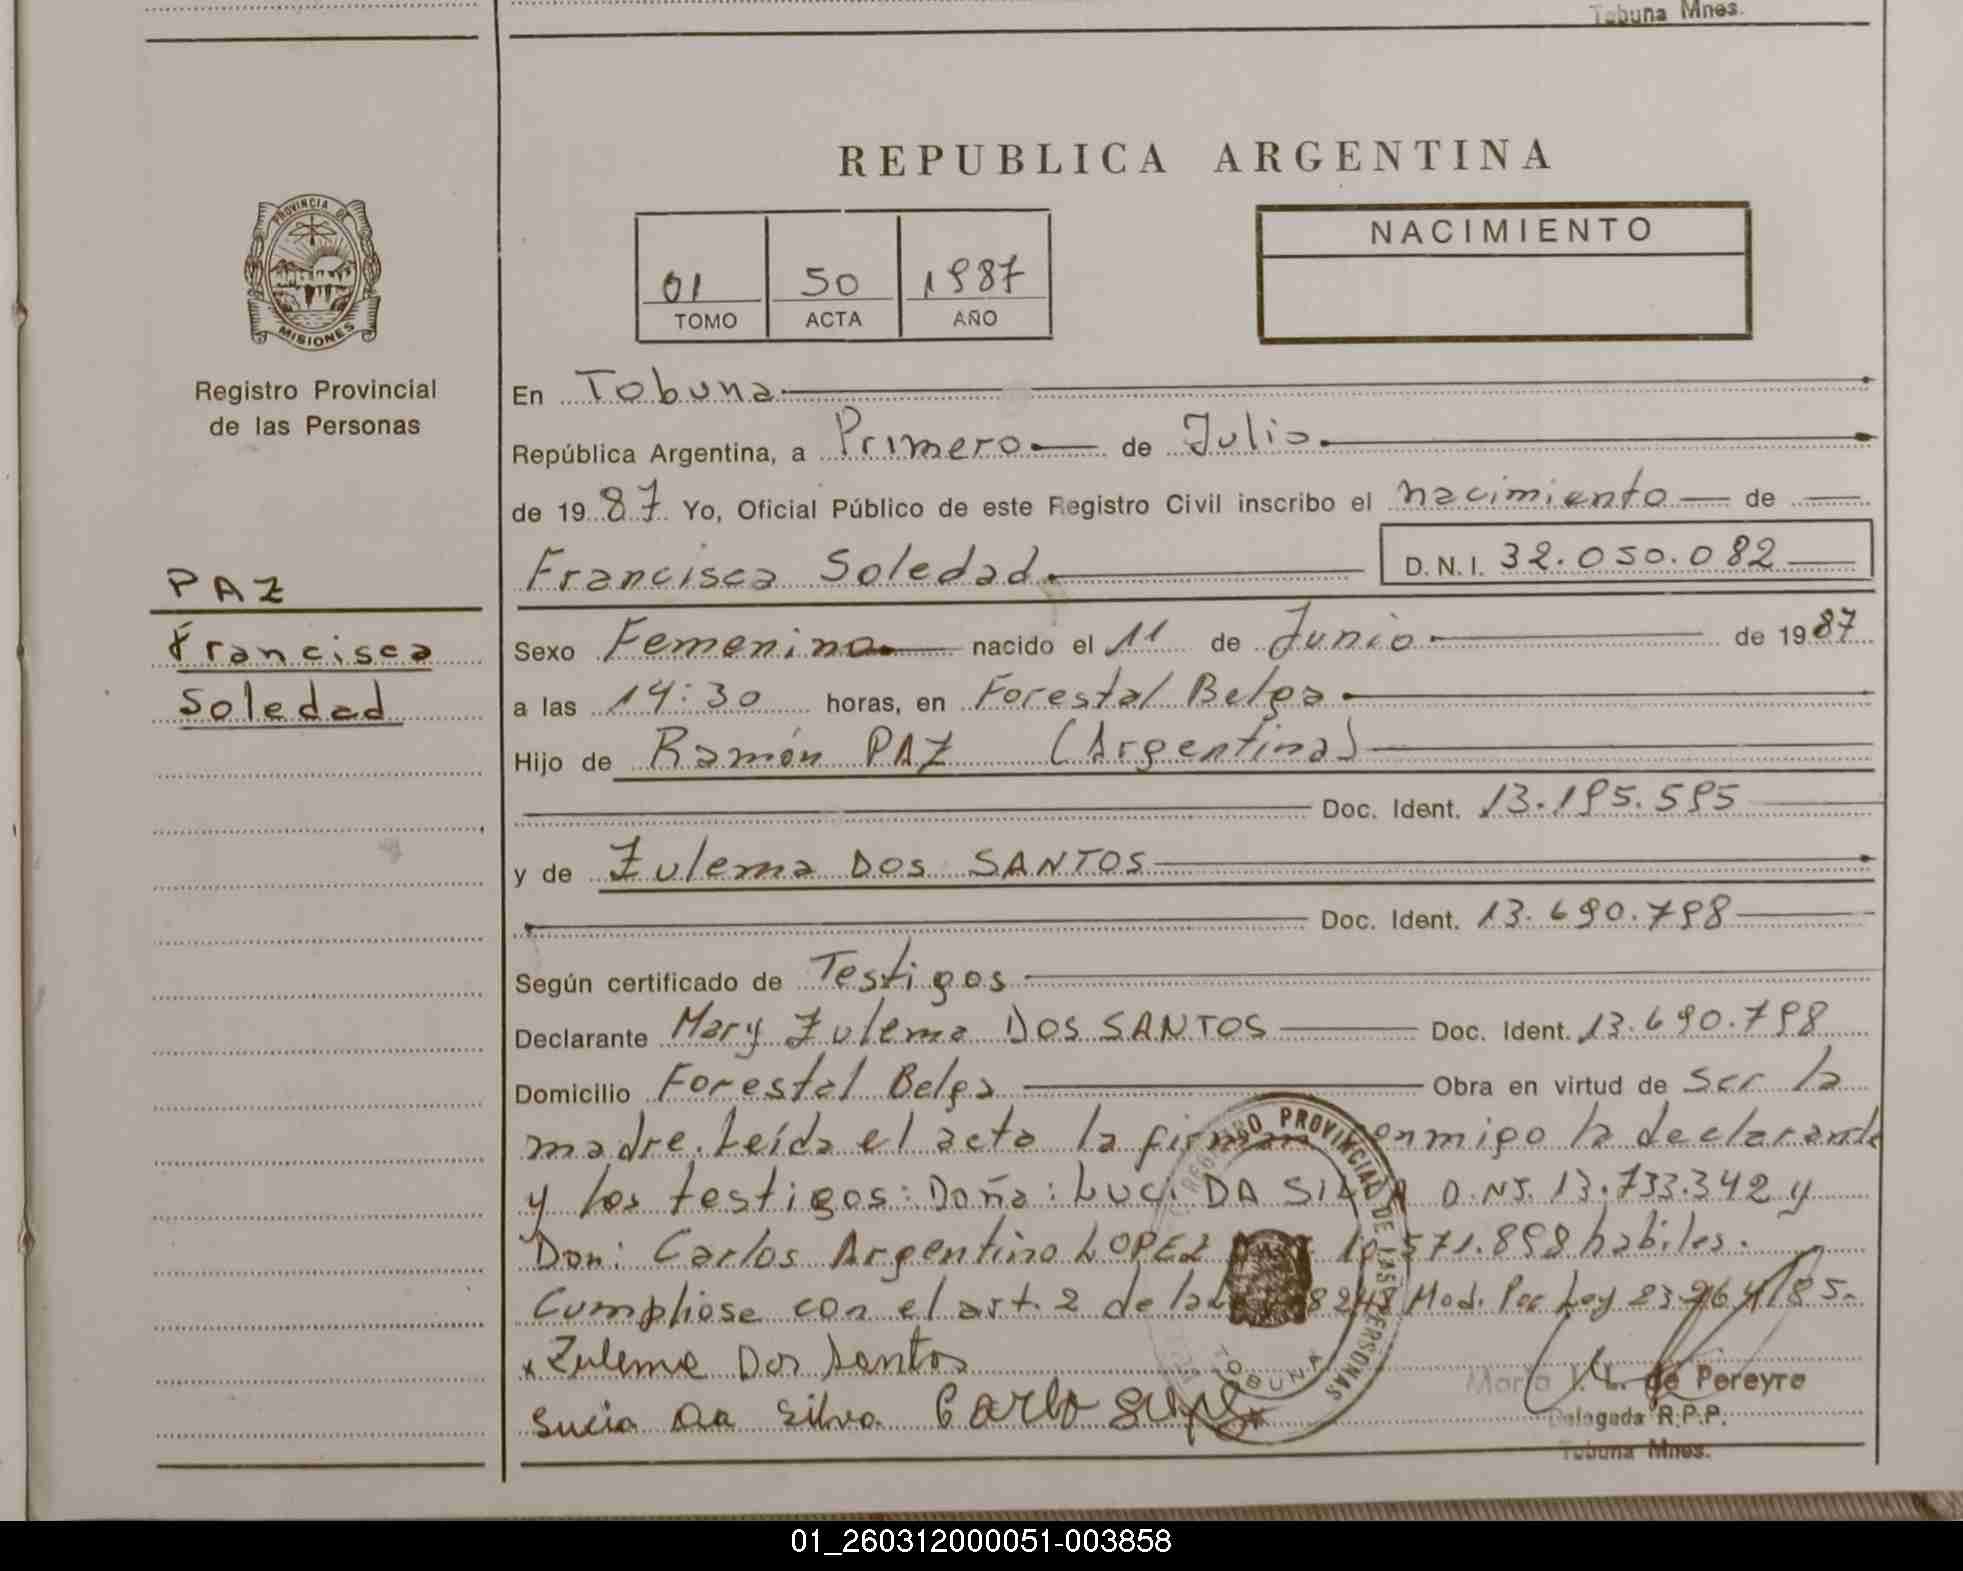 Tobuna Mnes.
REPUBLICA ARGENTINA
PROVINCIA DE
MISIONES
Registro Provincial
de las Personas
01 50 1987
TOMO ACTA AÑO
NACIMIENTO
En Tobuna
República Argentina, a Primero de Julio
de 19 87 Yo, Oficial Público de este Registro Civil inscribo el nacimiento de
Francisca Soledad D.N.I. 32.050.082
PAZ
Francisca
Soledad
Sexo Femenino nacido el 11 de Junio de 19 87
a las 14:30 horas, en Forestal Belga
Hijo de Ramón PAZ (Argentina)
Doc. Ident. 13.195.595
y de Zulema DOS SANTOS
Doc. Ident. 13.690.798
Según certificado de Testigos
Declarante Mary Zulema DOS SANTOS Doc. Ident. 13.690.798
Domicilio Forestal Belga Obra en virtud de ser la
madre. Leída el acta la firman conmigo la declarante
y los testigos: Doña: Luci DA SILVA D.N.I. 13.733.342 y
Don: Carlos Argentino LOPEZ 571.898 habiles.
Cumpliose con el art. 2 de la 18248 Mod. Por Ley 23.264/85.
x Zulema Dos Santos
Lucia Da Silva Carlo
REGISTRO PROVINCIAL DE LAS PERSONAS
TOBUNA
de Pereyro
Delegada R.P.P.
Tobuna Mnes.
01_260312000051-003858